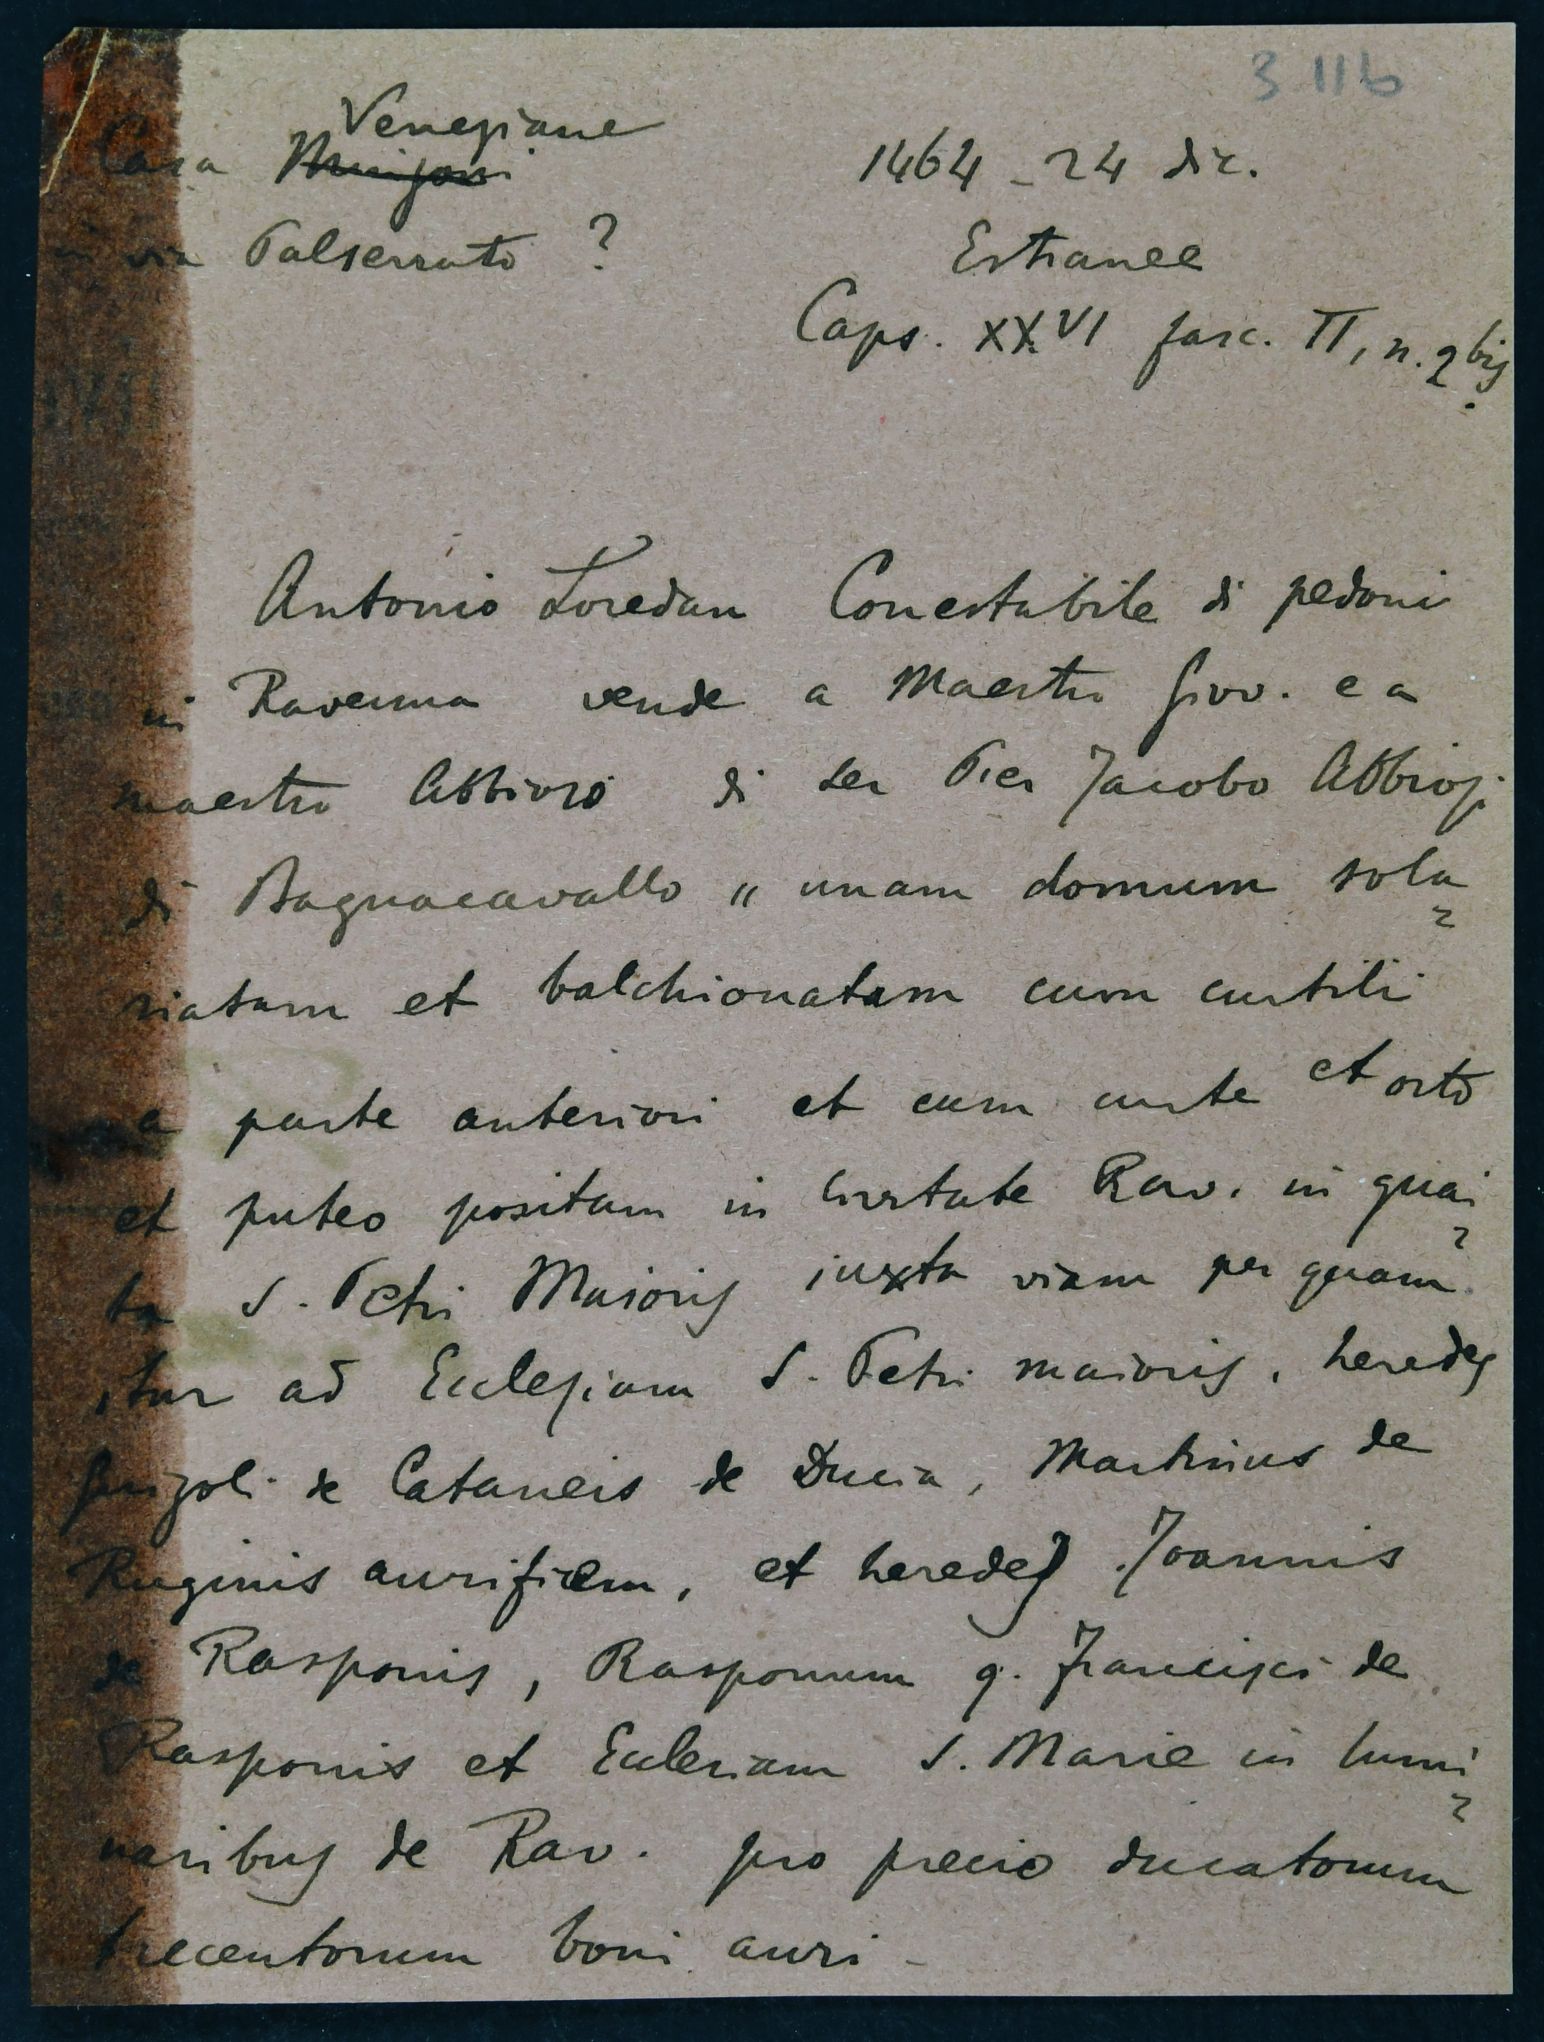 3 116
Veneziane
Casa Minzoni
in via Palserrato ?
1464 - 24 dic.
Estranee
Caps. XXVI fasc. II, n. 2 bis.
Antonio Loredan Conestabile di pedoni
in Ravenna vende a Maestro Giov. e a
maestro Abbioso di ser Pier Jacobo Abbiosi
di Bagnacavallo " unam domum sola
riatam et balchionatam cum curtili
a parte anteriori et cum curte et orto
et puteo positam in civitate Rav. in guai
ta S. Petri Maioris iuxta viam per quam
itur ad Eccleziam S. Petri maioris, heredes
de Cataneis de Ducia, Martinus de
Ruginis aurificem, et heredes Joannis
de Rasponis, Rasponum q. Francisci de
Rasponis et Eccleriam S. Marie in lumi
naribus de Rav. pro precio ducatorum
trecentorum boni auri -